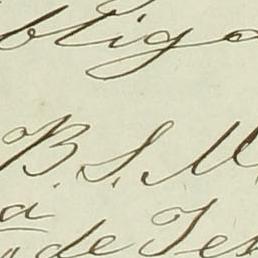 bliga
B. S. M.
a
de Te